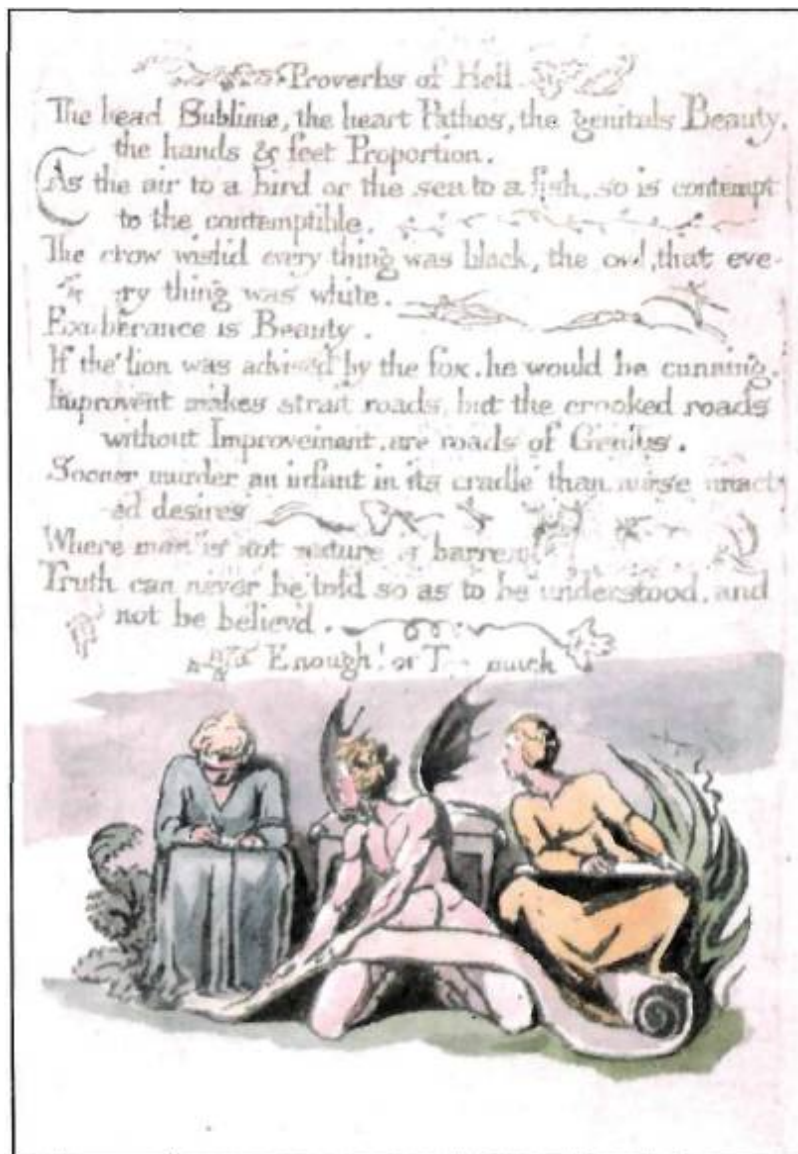 Proverbs of Hell.
The head Sublime, the heart Pathos, the genitals Beauty,
the hands & feet Proportion.
As the air to a bird or the sea to a fish, so is contempt
to the contemptible.
The crow wish'd every thing was black, the owl, that eve-
ry thing was white.
Exuberance is Beauty.
If the lion was advised by the fox. he would be cunning.
Improvent makes strait roads, but the crooked roads
without Improvement. are roads of Genius.
Sooner murder an infant in its cradle than nurse unact-
ed desires
Where man is not nature is barren.
Truth can never be told so as to be understood. and
not be believ'd.
Enough! or much